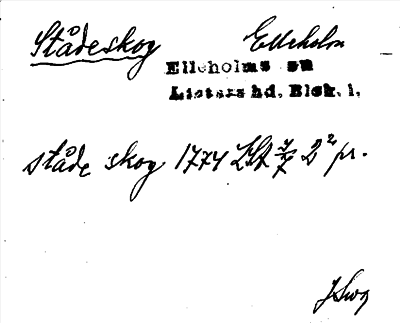 Stådeskog Elleholm
Elleholms sn
Listers hd. Blek. l.
ståde skog 1774 LSA 7/7 2² pr.
JSwg